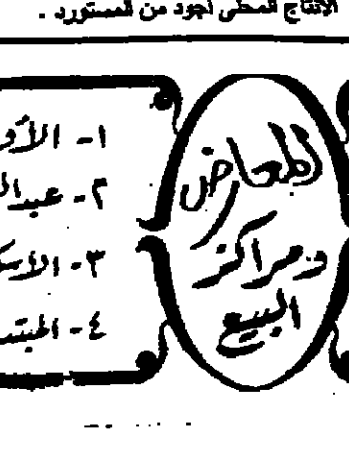 الانتاج المحلى أجود من المستورد .
المعارض
ومراكز
البيع
١- الأو
٢- عبدال
٣- الاسك
٤-